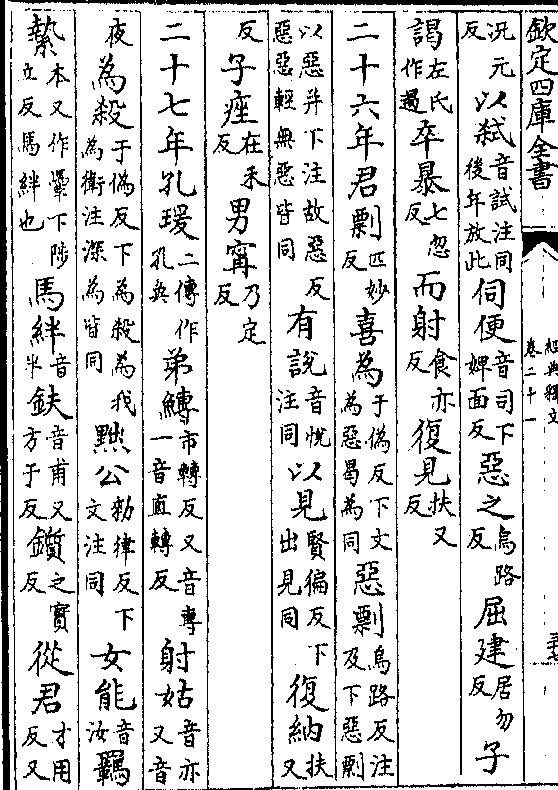 欽定四庫全書
經典釋文
卷二十一
況元反以弒音試注同後年放此伺便音司下婢面反惡之烏路反屈建居勿反子
謁左氏作遏卒暴七忽反而射食亦反復見扶又反
二十六年君剽匹妙反喜為于偽反下文為惡曷為同惡剽烏路反注及下惡剽
以惡并下注故惡惡惡輕無惡皆同反有說音悅注同以見賢徧反下出見同復納扶又
反子痤在禾反男寗乃定反
二十七年孔瑗二傳作孔奐弟鱄市轉反又音專一音直轉反射姑音亦又音
夜為殺于偽反下為殺為我為衛注深為皆同黜公勑律反下文注同女能音汝羈
縶本又作馽下陟立反馬絆也馬絆音半鈇音甫又方于反鑕之實反從君才用反又